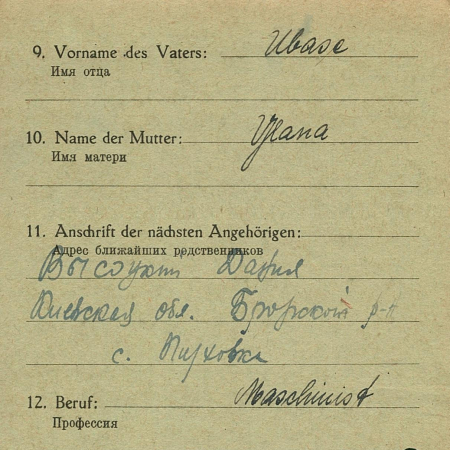 9. Vorname des Vaters: Ubase
Имя отца
10. Name der Mutter: Ulana
Имя матери
11. Anschrift der nächsten Angehörigen:
Адрес ближайших родственников
Высоцкий
Киевская обл. р-н
с. Пуховка
12. Beruf: Maschinist
Профессия